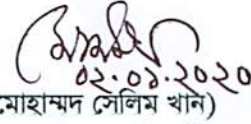 ০২.০১.২০২০
মোহাম্মদ সেলিম খান)